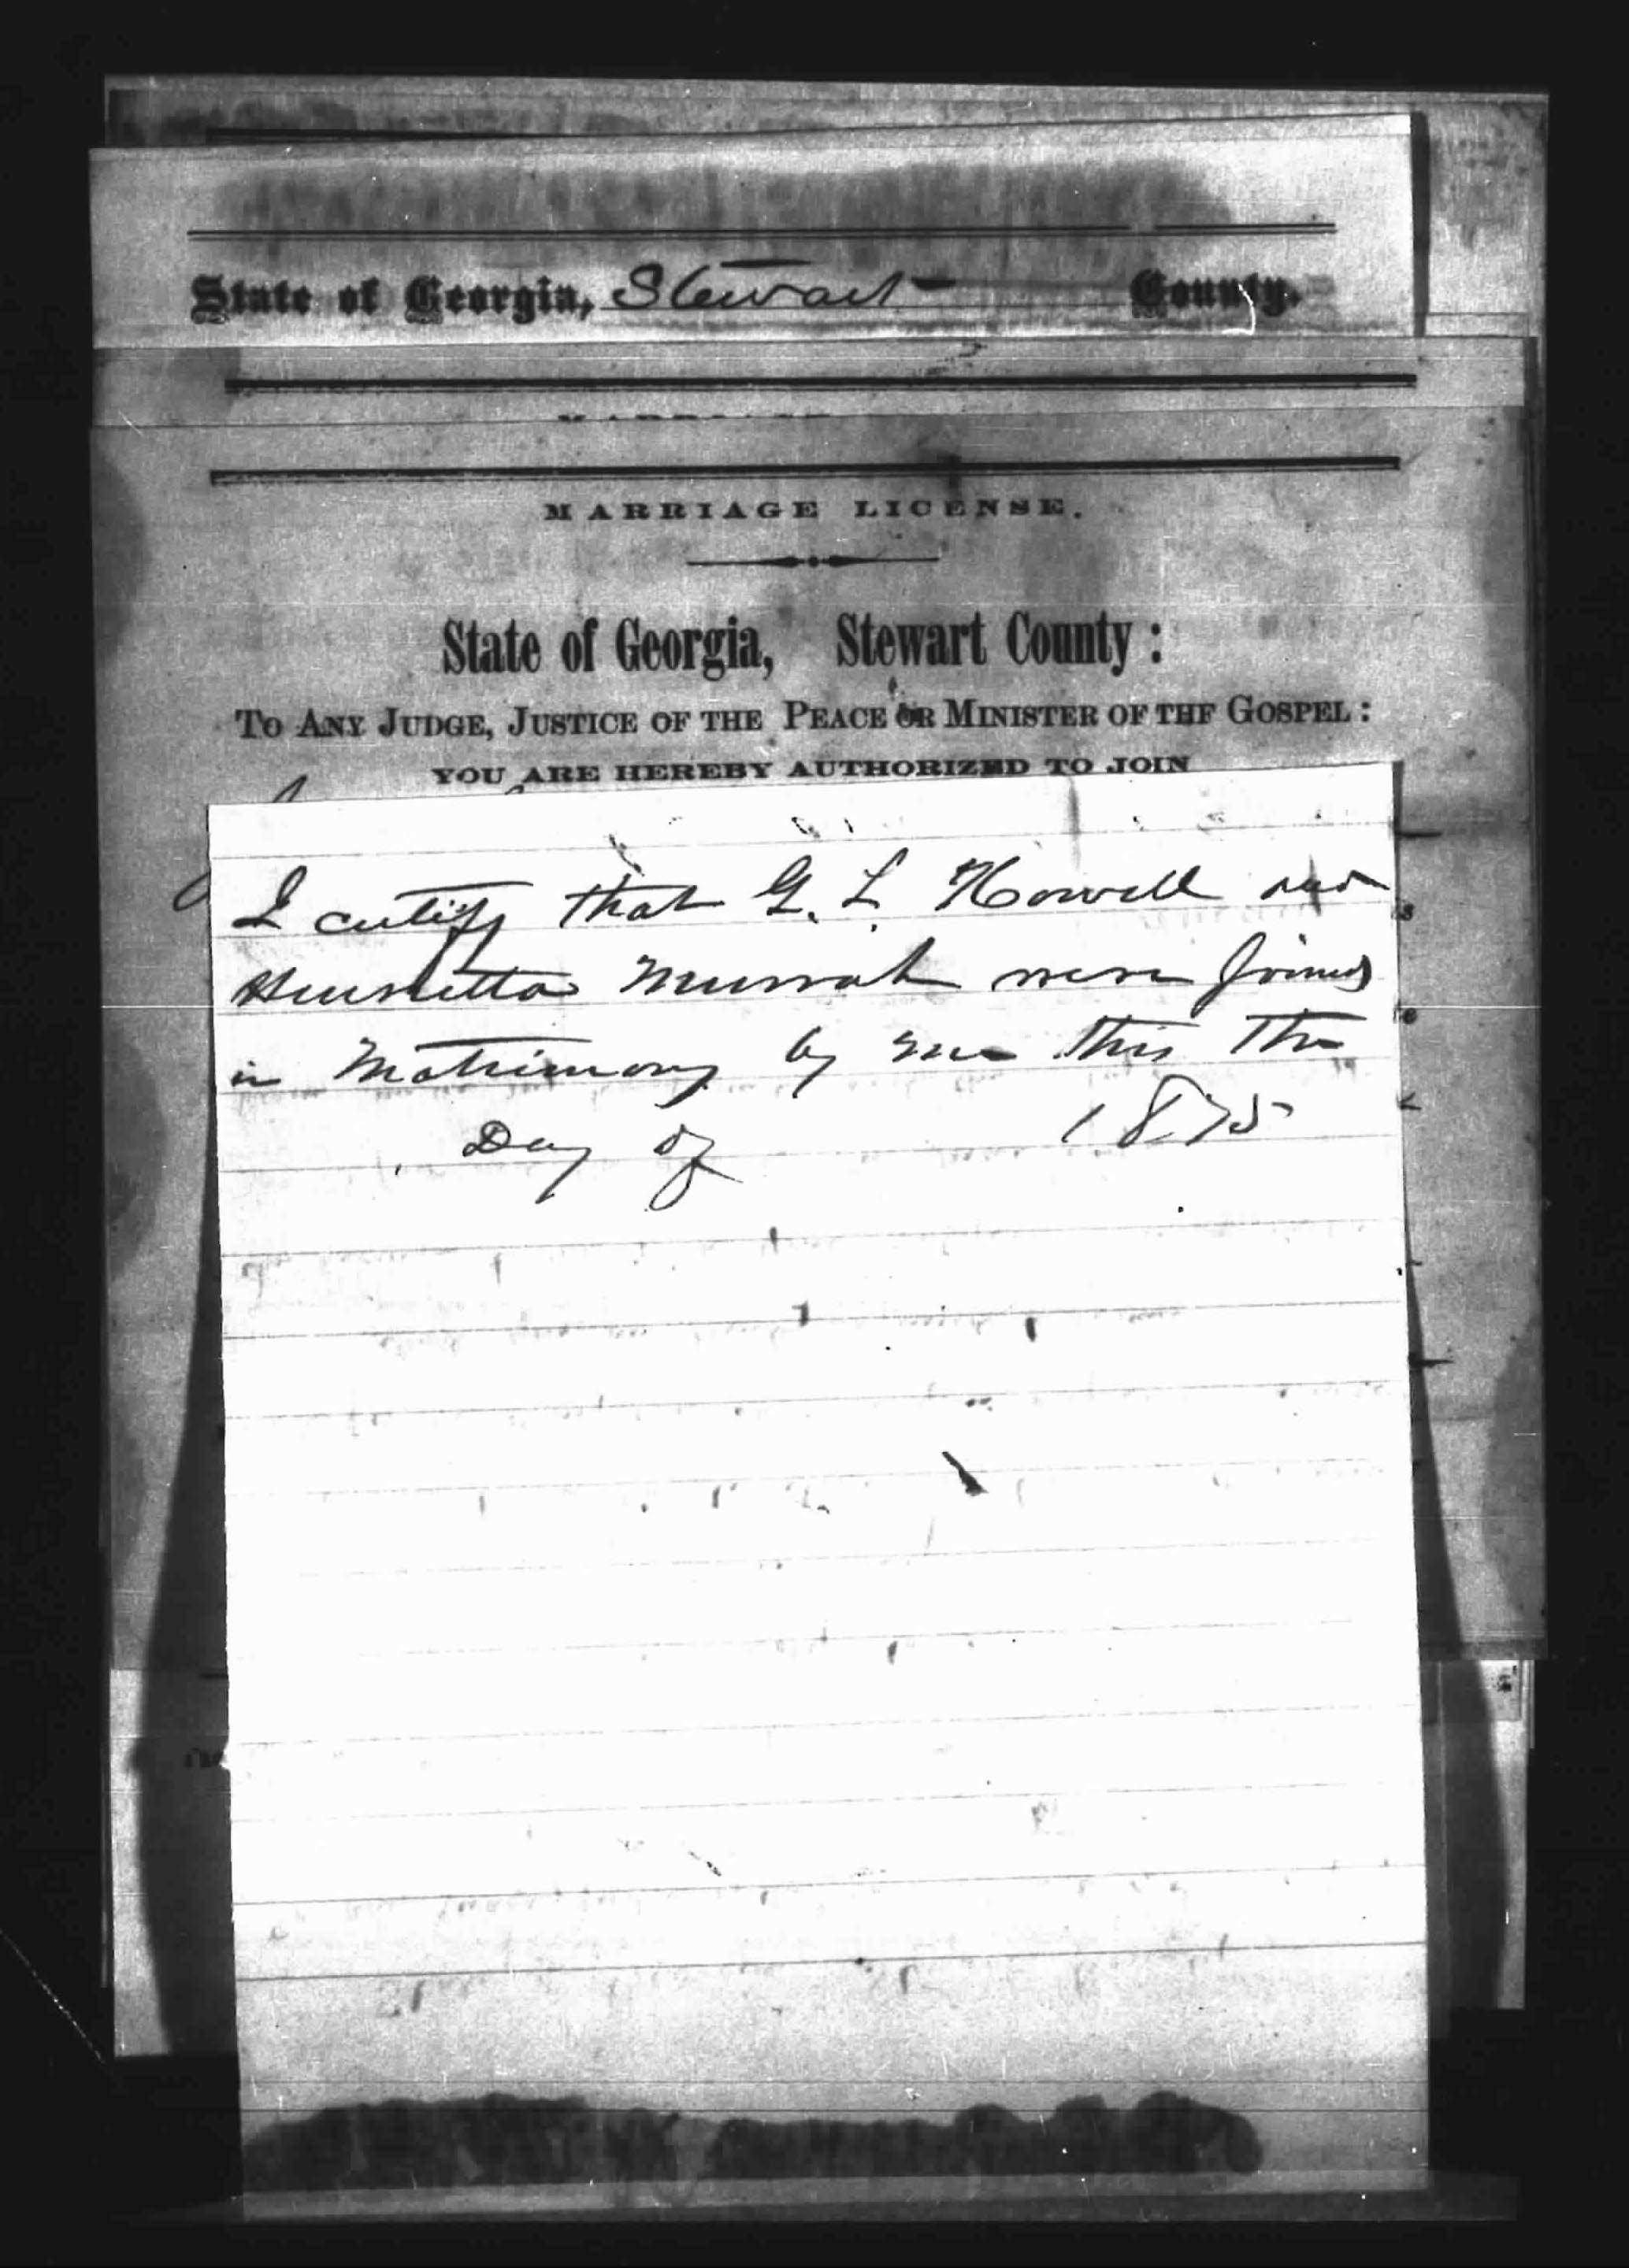 State of Georgia, Stewart County.
MARRIAGE LICENSE.
State of Georgia, Stewart County:
TO ANY JUDGE, JUSTICE OF THE PEACE OR MINISTER OF THE GOSPEL:
YOU ARE HEREBY AUTHORIZED TO JOIN
I certify that G. L. Howell and
Henrietta Murrah were joined
in Matrimony by me this the
Day of 1875